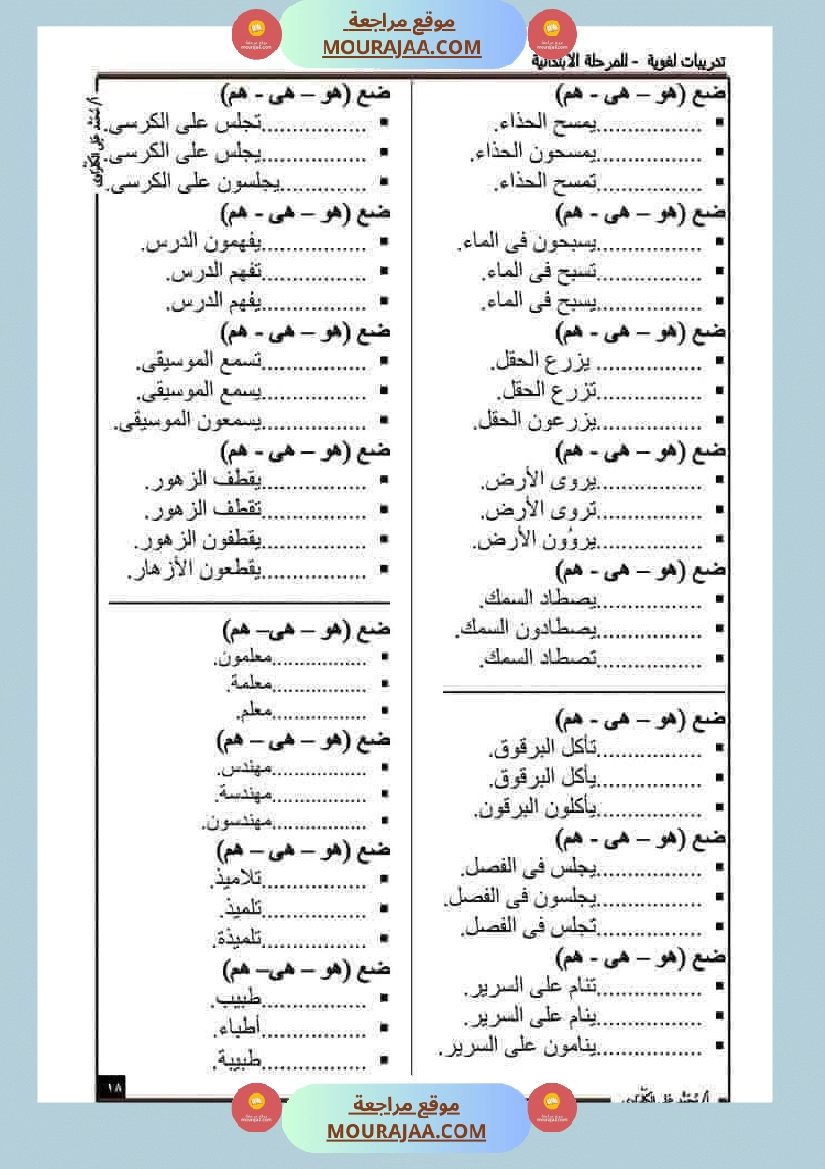 موقع مراجعة
MOURAJAA.COM
تدريبات لغوية - للمرحلة الابتدائية
ضع (هو – هى - هم)
.................يمسح الحذاء.
.................يمسحون الحذاء.
.................تمسح الحذاء.
ضع (هو – هى - هم)
.................يسبحون فى الماء.
.................تسبح فى الماء.
.................يسبح فى الماء.
ضع (هو – هى - هم)
................. يزرع الحقل.
.................تزرع الحقل.
.................يزرعون الحقل.
ضع (هو – هى - هم)
.................يروى الأرض.
.................تروى الأرض.
.................يروُون الأرض.
ضع (هو – هى - هم)
.................يصطاد السمك.
.................يصطادون السمك.
.................تصطاد السمك.
ضع (هو – هى - هم)
.................تأكل البرقوق.
.................يأكل البرقوق.
.................يأكلون البرقون.
ضع (هو – هى - هم)
.................يجلس فى الفصل.
.................يجلسون فى الفصل.
.................تجلس فى الفصل.
ضع (هو – هى - هم)
.................تنام على السرير.
.................ينام على السرير.
.................ينامون على السرير.
ضع (هو – هى - هم)
.................تجلس على الكرسى.
.................يجلس على الكرسى.
..............يجلسون على الكرسى.
ضع (هو – هى - هم)
.................يفهمون الدرس.
.................تفهم الدرس.
.................يفهم الدرس.
ضع (هو – هى - هم)
.................تسمع الموسيقى.
.................يسمع الموسيقى.
.................يسمعون الموسيقى.
ضع (هو – هى - هم)
.................يقطف الزهور.
.................تقطف الزهور.
.................يقطفون الزهور.
.................يقطعون الأزهار.
ضع (هو – هى– هم)
.................معلمون.
.................معلمة.
.................معلم.
ضع (هو – هى – هم)
.................مهندس.
.................مهندسة.
.................مهندسون.
ضع (هو – هى – هم)
.................تلاميذ.
.................تلميذ.
.................تلميذة.
ضع (هو – هى– هم)
.................طبيب.
.................أطباء.
.................طبيبة.
١٨
موقع مراجعة
MOURAJAA.COM